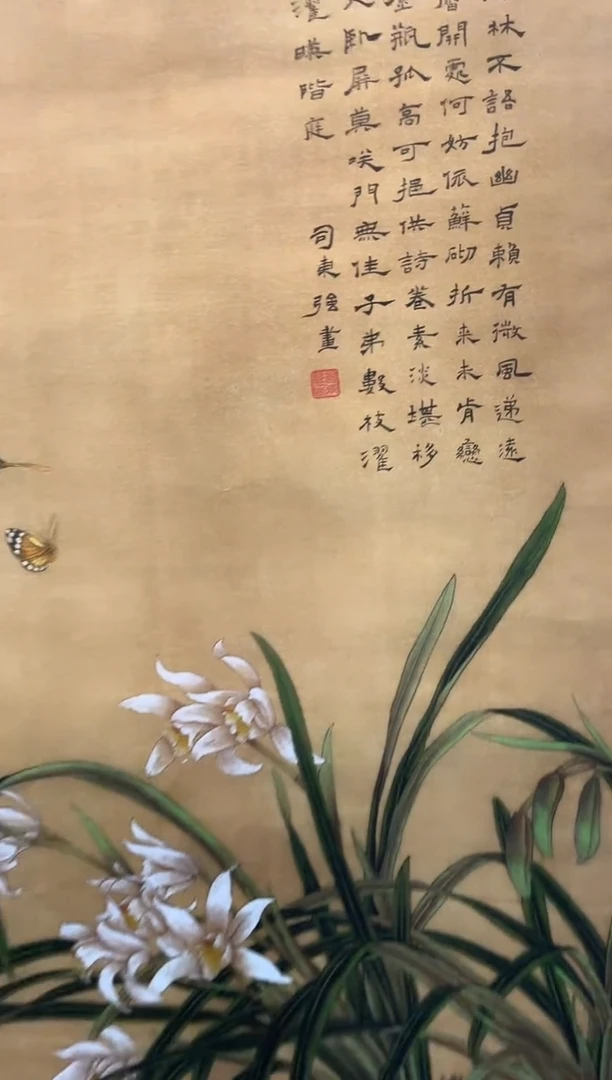 林不語抱幽貞賴有微風遞遠
開處何妨依蘚砌折来未肯戀
瓶孤高可挹供詩卷素淡堪移
臥屏莫咲門無佳子弟數枝濯
濯暎階庭
司東強畫